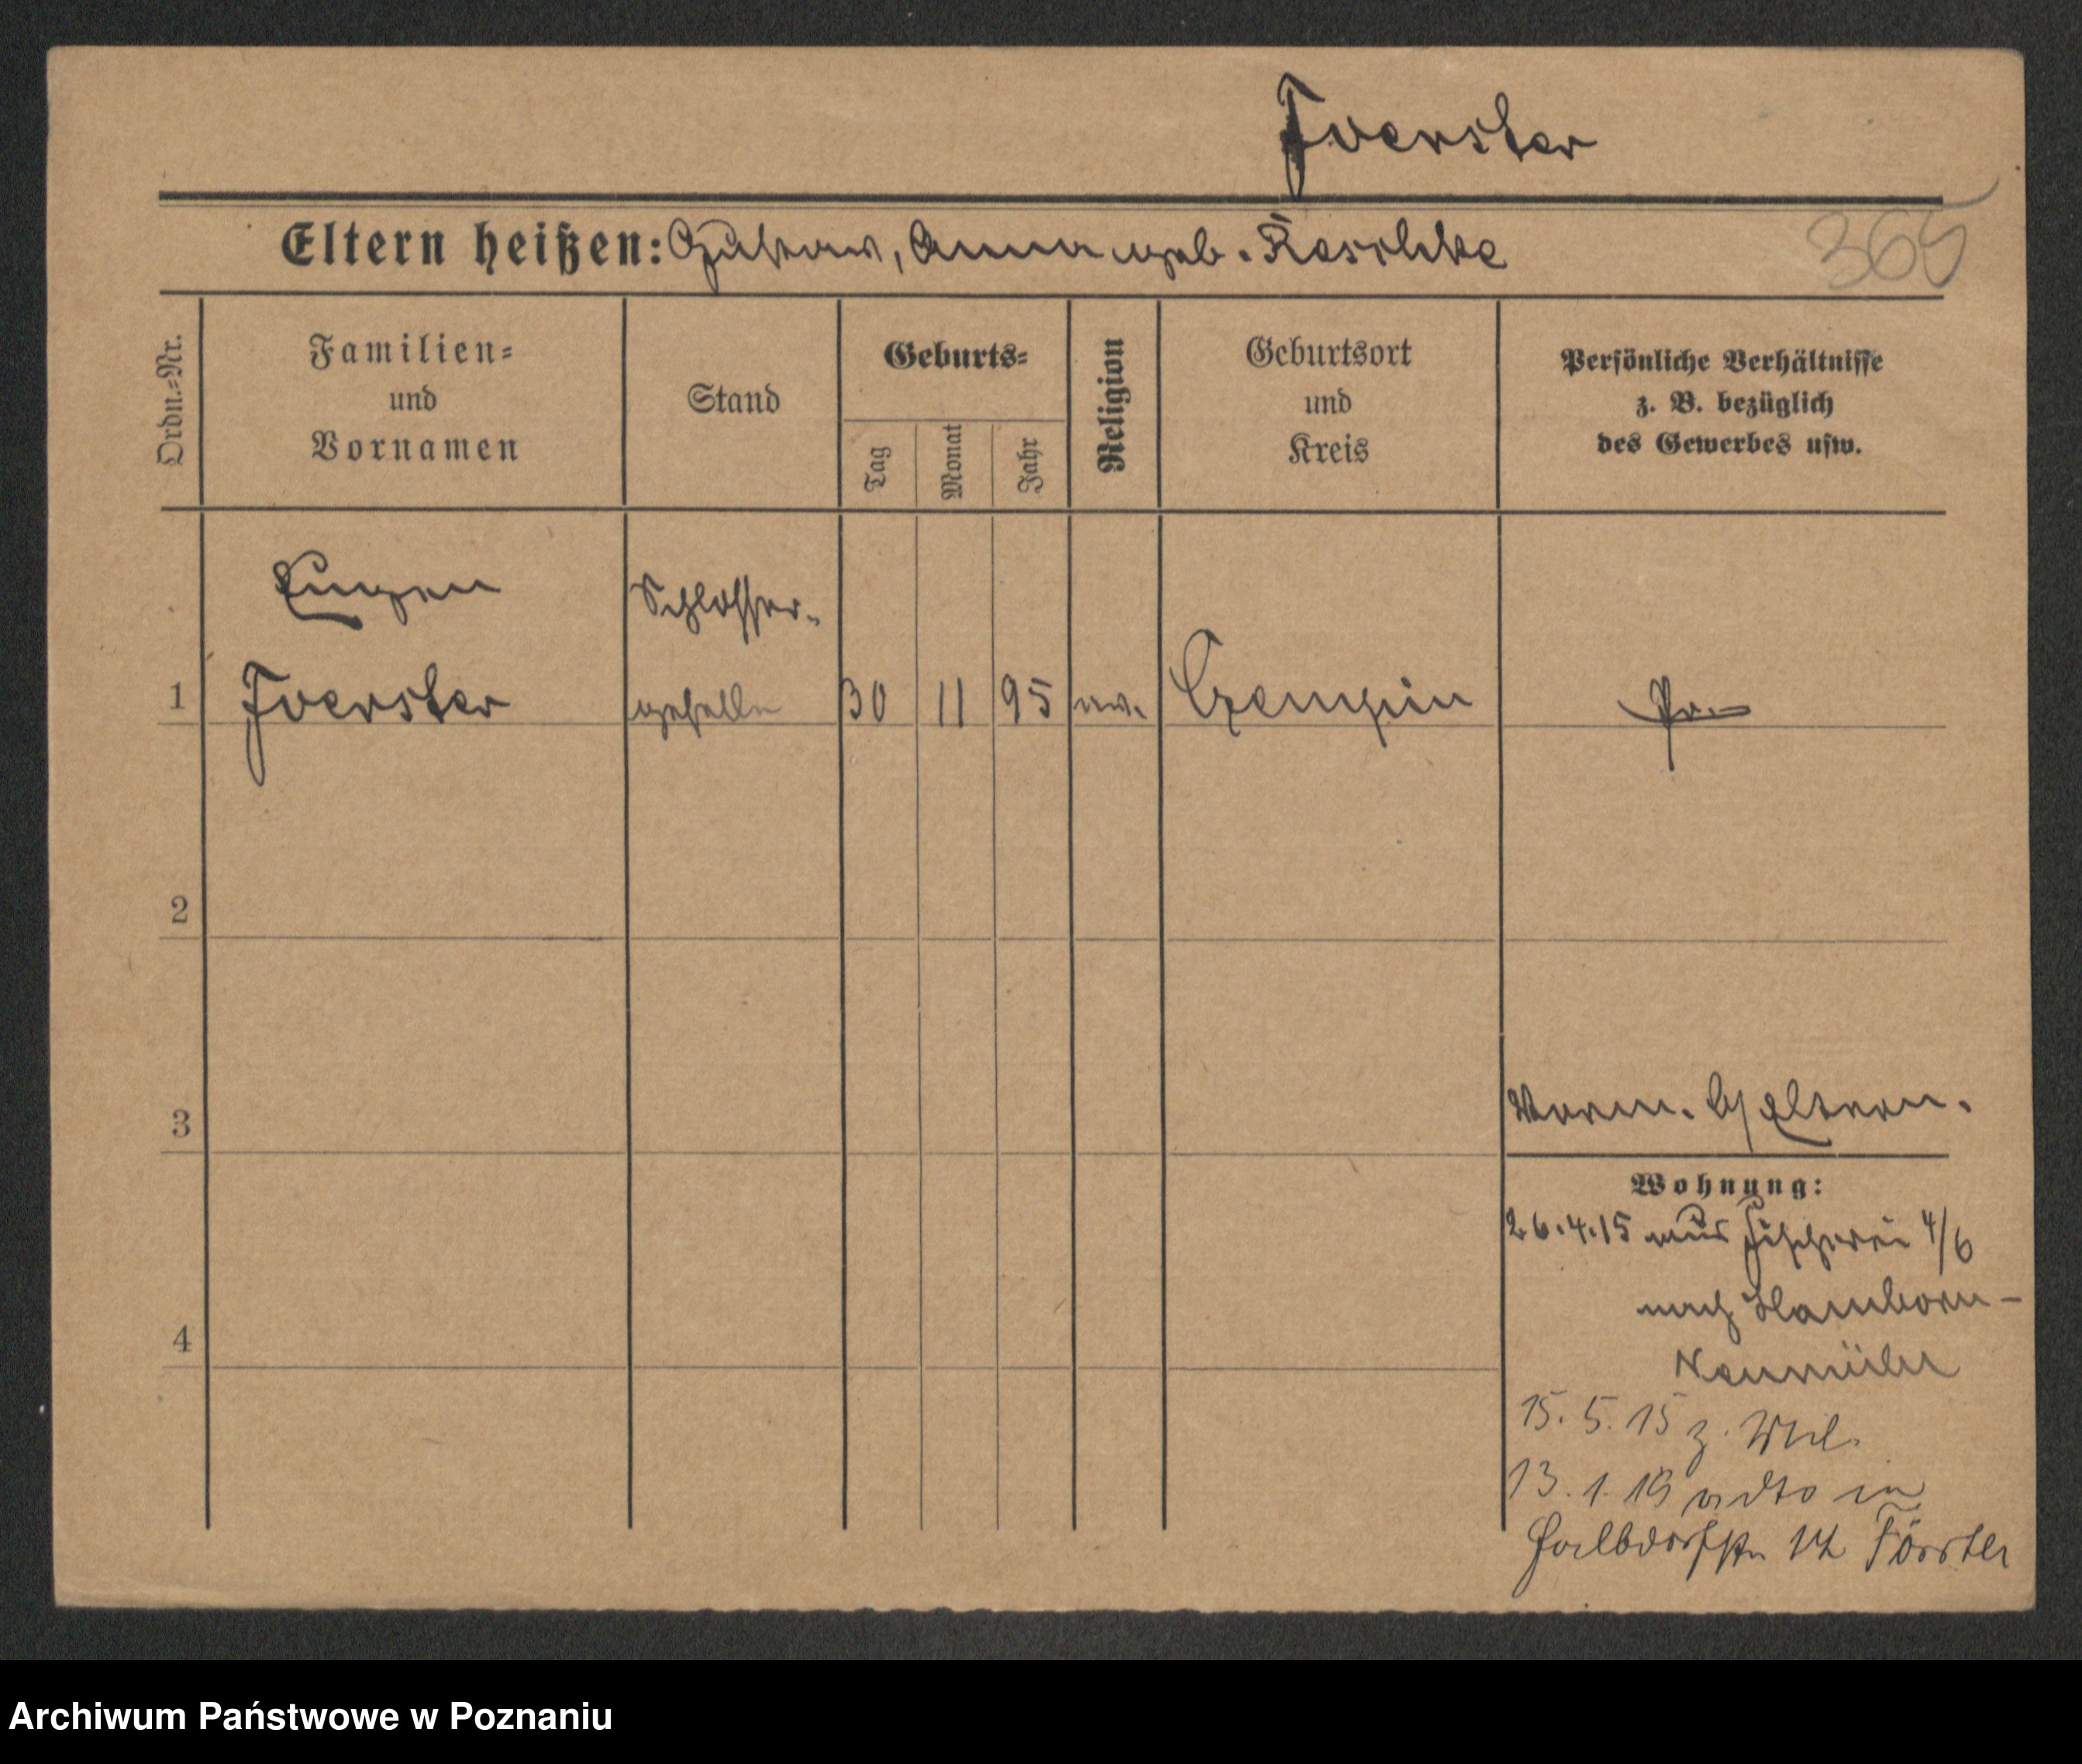 Foerster
Eltern heißen: Gustav, Anna geb. Raschke
365
Ordn.-Nr.
Familien-
und
Vornamen
Stand
Geburts-
Tag
Monat
Jahr
Religion
Geburtsort
und
Kreis
Persönliche Verhältnisse
z. B. bezüglich
des Gewerbes usw.
Eugen
Schlosser-
1 Foerster geselle 30 11 95 ev. Czempin Pr.
2
3
Vorm. b/Eltern.
Wohnung:
26.4.15 aus Fischerei 4/6
nach Hamborn-
4
Neumühl
15. 5. 15 z. Mil.
13. 1. 19 in
Halbdorfstr. 14 Förster
Archiwum Państwowe w Poznaniu